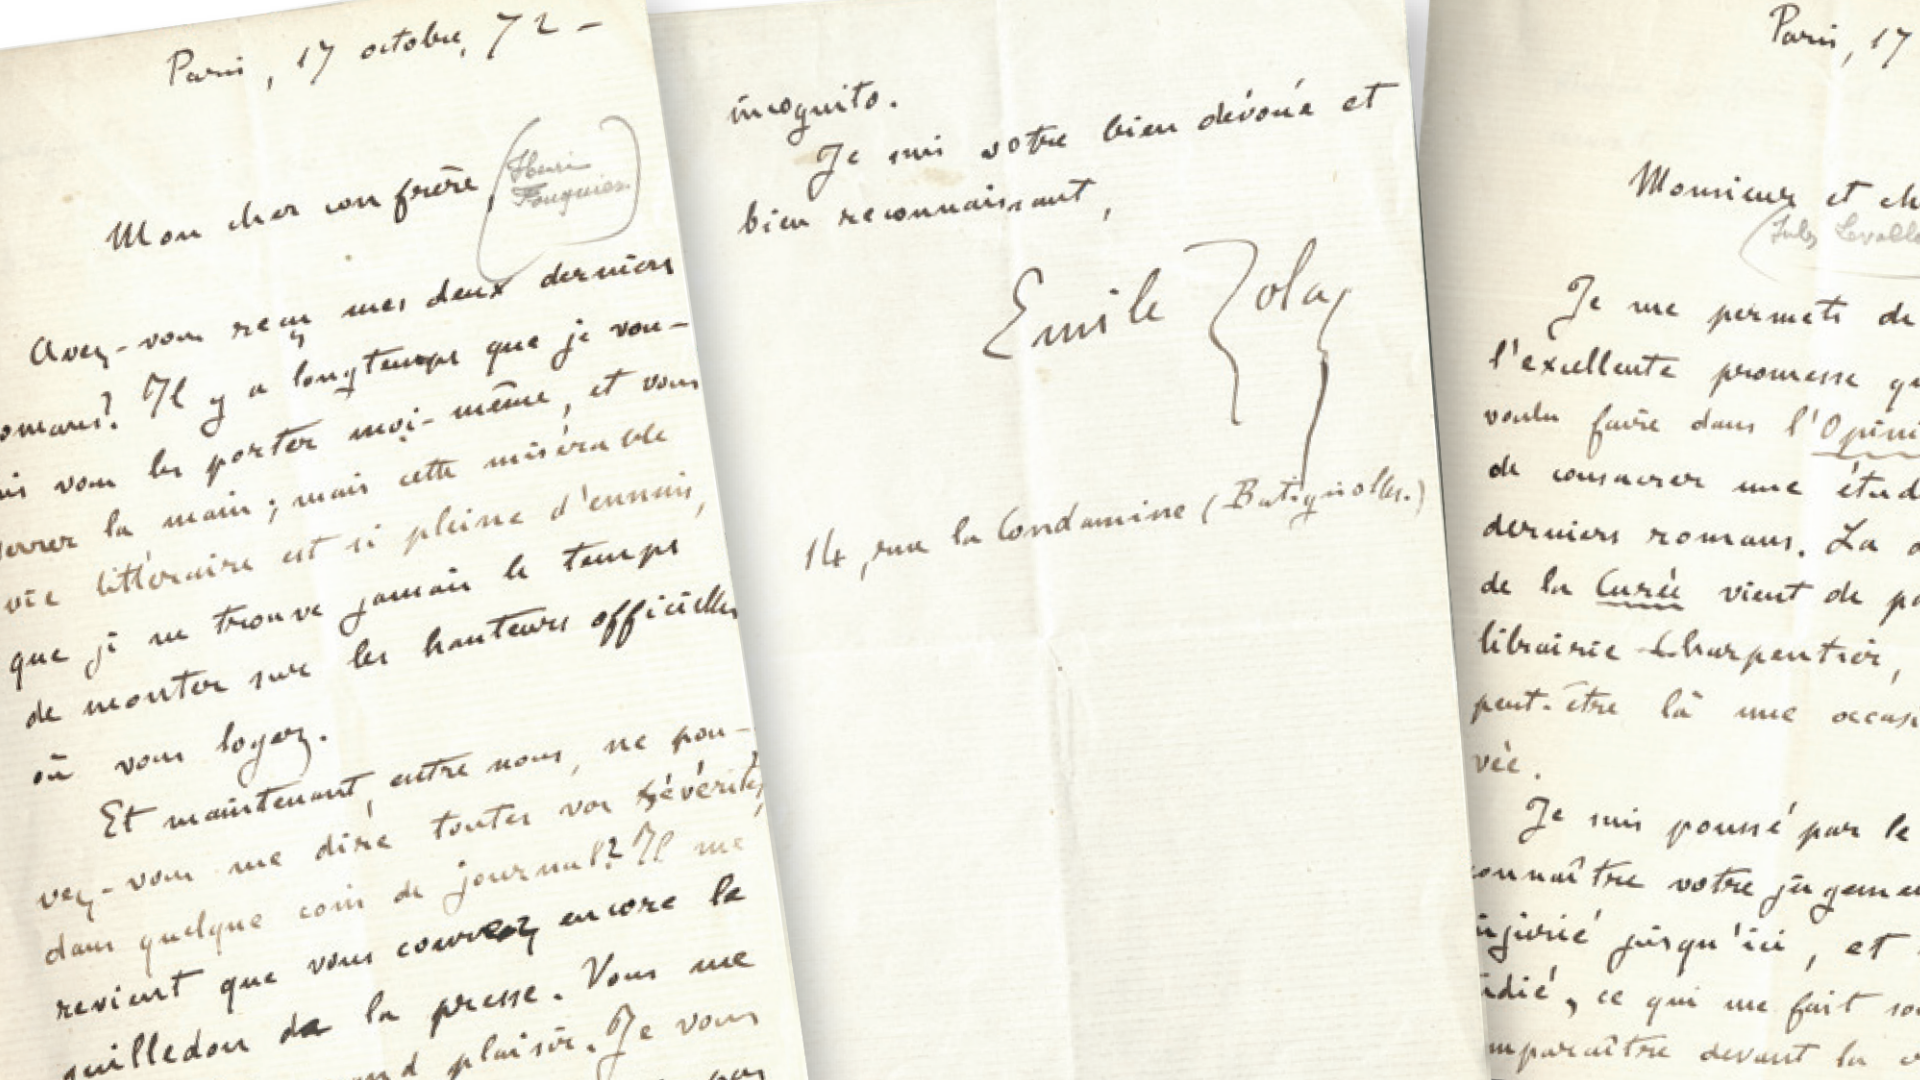 Paris, 17 octobre, 72 –
Mon cher confrère,
(Henri
Fouquier)
Avez-vous reçu mes deux derniers
omans? Il y a longtemps que je vou-
ais vous les porter moi-même, et vous
errer la main; mais cette misérable
vie littéraire est si pleine d'ennuis,
que je ne trouve jamais le temps
de monter sur les hauteurs officielles
où vous logez.
Et maintenant, entre nous, ne pou-
vez-vous me dire toutes vos sévérités
dans quelque coin de journal? Il me
revient que vous courez encore le
guilledou de la presse. Vous me
plaisir. Je vous
pas
incognito.
Je suis votre bien dévoué et
bien reconnaissant,
Emile Zola
14, rue la Condamine (Batignolles.)
Paris, 17
Monsieur et ch
(Jules Levallo
Je me permets de
l'excellente promesse qu
voulu faire dans l'Opini
de consacrer une étud
derniers romans. La
de la Curée vient de pa
librairie Charpentier,
peut-être là une occasi
vée.
Je suis poussé par le
connaître votre jugeme
injurié jusqu'ici, et
udié, ce qui me fait sou
mparaître devant la